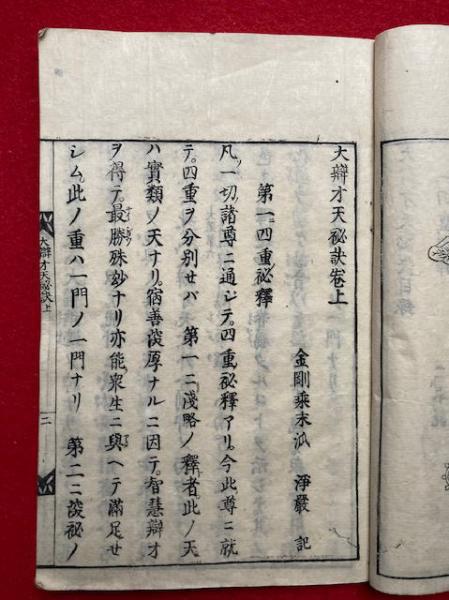 大辯才天祕訣卷上
金剛乘末泒 淨嚴 記
第一四重祕釋
凡一切諸尊ニ通シテ四重祕釋アリ。今此尊ニ就
テ。四重ヲ分別セバ 第一ニ淺略ノ釋者。此ノ天
ハ實類ノ天ナリ。宿善深厚ナルニ因テ。智慧辯才
ヲ得テ。最勝殊妙ナリ亦能衆生ニ與ヘテ滿足せ
シム。此ノ重ハ一門ノ一門ナリ 第二ニ深祕ノ
大辯才天祕訣上
二